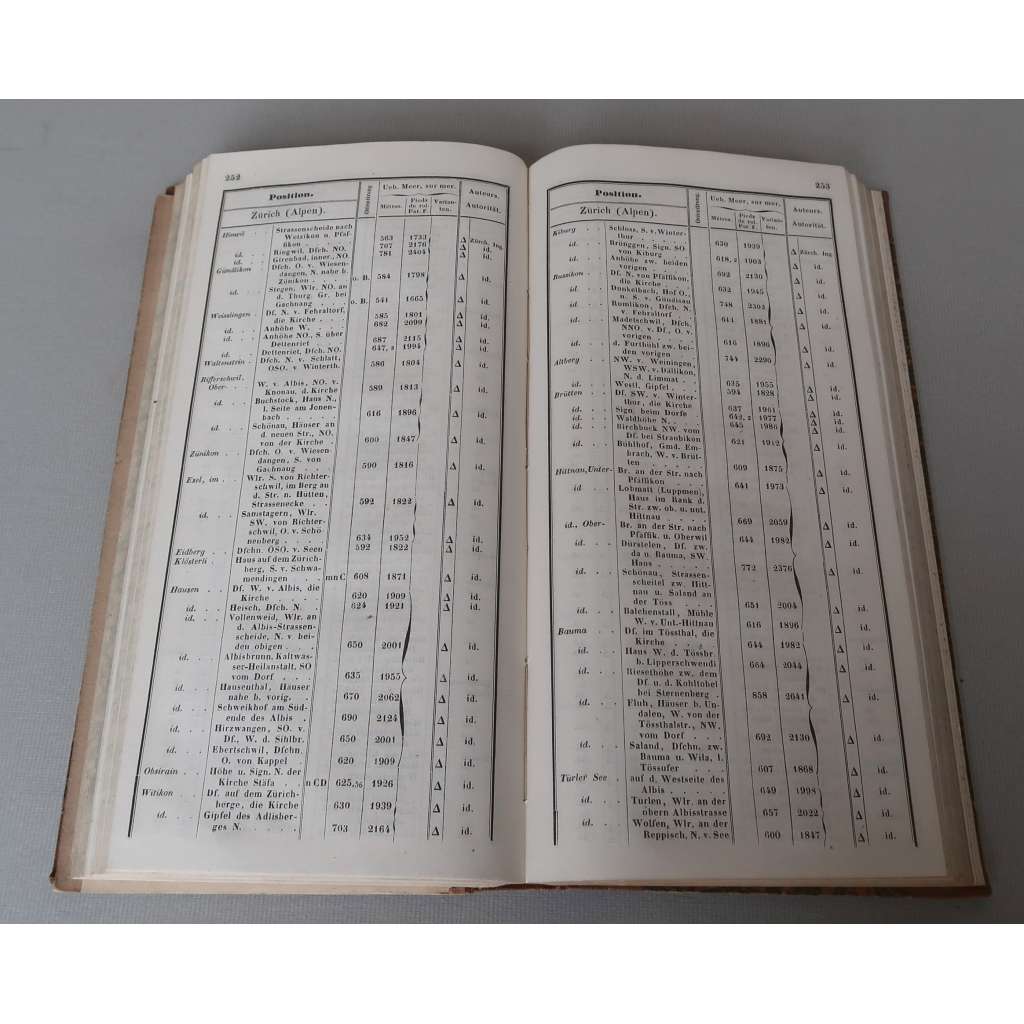 252
Position.
Ueb. Meer, sur mer.
Auteurs.
Zürich (Alpen).
Mètres.
Pieds de roi Par. F.
Varianten.
Autorität.
Strassenscheide nach
Wetzikon u. Pfäf-
fikon . . 563 1733 Δ Zürch. Ing
id. . . Ringwil, Dfch. NO. 707 2176 Δ id.
id. . . Girenbad, inner., NO. 781 2404 Δ id.
Gündlikon Dfch. O. v. Wiesen-
dangen, N. nahe b.
Zünikon . . . o. B. 584 1798 Δ id.
id. . . Siegen, Wlr. NO. an
d. Thurg. Gr. bei
Gachnang . . o. B. 541 1665 Δ id.
Weisslingen . Df. N. v. Fehraltorf,
die Kirche . . 585 1801 Δ id.
id. . . Anhöhe W. . . 682 2099 Δ id.
id. . . Anhöhe NO., S. über
Dettenriet . . 687 2115 Δ id.
id. . . Dettenriet, Dfch. NO. 647,2 1994 Δ id.
Dfch. N. v. Schlatt,
OSO. v. Winterth. 586 1804 Δ id.
Rifferschwil,
Ober- . . W. v. Albis, NO. v.
Knonau, d. Kirche 589 1813 Δ id.
id. . . Buchstock, Haus N.,
l. Seite am Jonen-
bach . . . . 616 1896 Δ id.
id. . . Schönau, Häuser an
d. neuen Str., NO.
von der Kirche . 600 1847 Δ id.
Zünikon . . Dfch. O. v. Wiesen-
dangen, S. von
Gachnang . . . 590 1816 Δ id.
Esel, im . . Wlr. S. von Richter-
schwil, im Berg an
d. Str. n. Hütten,
Strassenecke . . 592 1822 Δ id.
id. . . Samstagern, Wlr.
SW. von Richter-
schwil, O. v. Schö-
nenberg . . . 634 1952 Δ id.
Eidberg . . Dfchn. OSO. v. Seen 592 1822 Δ id.
Klösterli . . Haus auf dem Zürich-
berg, S. v. Schwa-
mendingen . . mn C 608 1871 Δ id.
Hausen . . Df. W. v. Albis, die
Kirche . . . . 620 1909 Δ id.
id. . . Heisch, Dfch. N. . 624 1921 Δ id.
id. . . Vollenweid, Wlr. an
d. Albis-Strassen-
scheide, N. v. bei-
den obigen . . . 650 2001 Δ id.
id. . . Albisbrunn, Kaltwas-
ser-Heilanstalt, SO
vom Dorf . . . 635 1955 Δ id.
id. . . Hausenthal, Häuser
nahe b. vorig. . . 670 2062 Δ id.
id. . . Schweikhof am Süd-
ende des Albis . 690 2124 Δ id.
id. . . Hirzwangen, SO. v.
Df., W. d. Sihlbr. 650 2001 Δ id.
id. . . Ebertschwil, Dfchn.
O. von Kappel . 620 1909 Δ id.
Obsirain . . Höhe u. Sign. N. der
Kirche Stäfa . . n CD 625,56 1926 Δ id.
Witikon . . Df. auf dem Zürich-
berge, die Kirche 630 1939 Δ id.
id. . . Gipfel des Adlisber-
ges N. . . . . . 703 2164 Δ id.
253
Position.
Ueb. Meer, sur mer.
Auteurs.
Zürich (Alpen).
Mètres.
Pieds de roi Par. F.
Varianten.
Autorität.
Kiburg . . Schloss, S. v. Winter-
thur . . . . 630 1939 Δ Zürch. Ing
id. . . Brünggen, Sign. SO
von Kiburg . . 618,2 1903 Δ id.
id. . . Anhöhe zw. beiden
vorigen . . . 692 2130 Δ id.
Russikon . . Df. N. von Pfäffikon,
die Kirche . . . 632 1945 Δ id.
id. . . Dunkelbach, Hof O.,
u. S. v. Gündisau 748 2303 Δ id.
id. . . Rumlikon, Dfch. N.
v. Fehraltorf . . 644 1881 Δ id.
id. . . Madetschwil, Dfch.
NNO. v. Df., O. v.
vorigen . . . 616 1896 Δ id.
id. . . d. Furthühl zw. bei-
den vorigen . . 744 2290 Δ id.
Altberg . . NW. v. Weiningen,
WSW. v. Dällikon,
N. d. Limmat . . 635 1955 Δ id.
id. . . Westl. Gipfel . . 594 1828 Δ id.
Brütten . . Df. SW. v. Winter-
thur, die Kirche 637 1961 Δ id.
id. . . Sign. beim Dorfe 642,2 1977 Δ id.
id. . . Waldhöhe N. . . 645 1986 Δ id.
id. . . Birchbück NW. vom
Df. bei Straubikon 621 1912 Δ id.
id. . . Bühlhof, Gmd. Em-
brach, W. v. Brüt-
ten . . . . 609 1875 Δ id.
Hittnau, Unter- Br. an der Str. nach
Pfäffikon . . . 641 1973 Δ id.
id . . Lobmatt (Luppmen),
Haus im Rank d.
Str. zw. ob. u. unt.
Hittnau . . . 669 2059 Δ id.
id., Ober- Br. an der Str. nach
Pfäffik. u. Oberwil 644 1982 Δ id.
id. . . Dürstelen, Df. zw.
da u. Bauma, SW.
Haus . . . . 772 2376 Δ id.
id. . . Schönau, Strassen-
scheitel zw. Hitt-
nau u. Saland an
der Töss . . . 651 2004 Δ id.
id. . . Balchenstall, Mühle
W. v. Unt.-Hittnau 616 1896 Δ id.
Bauma . . Df. im Tössthal, die
Kirche . . . . 644 1982 Δ id.
id. . . Haus W. d. Tössbr.
b. Lipperschwendi 664 2044 Δ id.
id. . . Riesethöhe zw. dem
Df u. d. Kohltobel
bei Sternenberg . 858 2641 Δ id.
id. . . Fluh, Häuser b. Un-
dalen, W. von der
Tössthalstr., NW.
vom Dorf . . . 692 2130 Δ id.
id. . . Saland, Dfchn. zw.
Bauma u. Wila, l.
Tössufer . . . 607 1868 Δ id.
Türler See . auf d. Westseite des
Albis . . . . 649 1998 Δ id.
id. . . Türlen, Wlr. an der
obern Albisstrasse 657 2022 Δ id.
id. . . Wolfen, Wlr. an der
Reppisch, N. v. See 600 1847 Δ id.